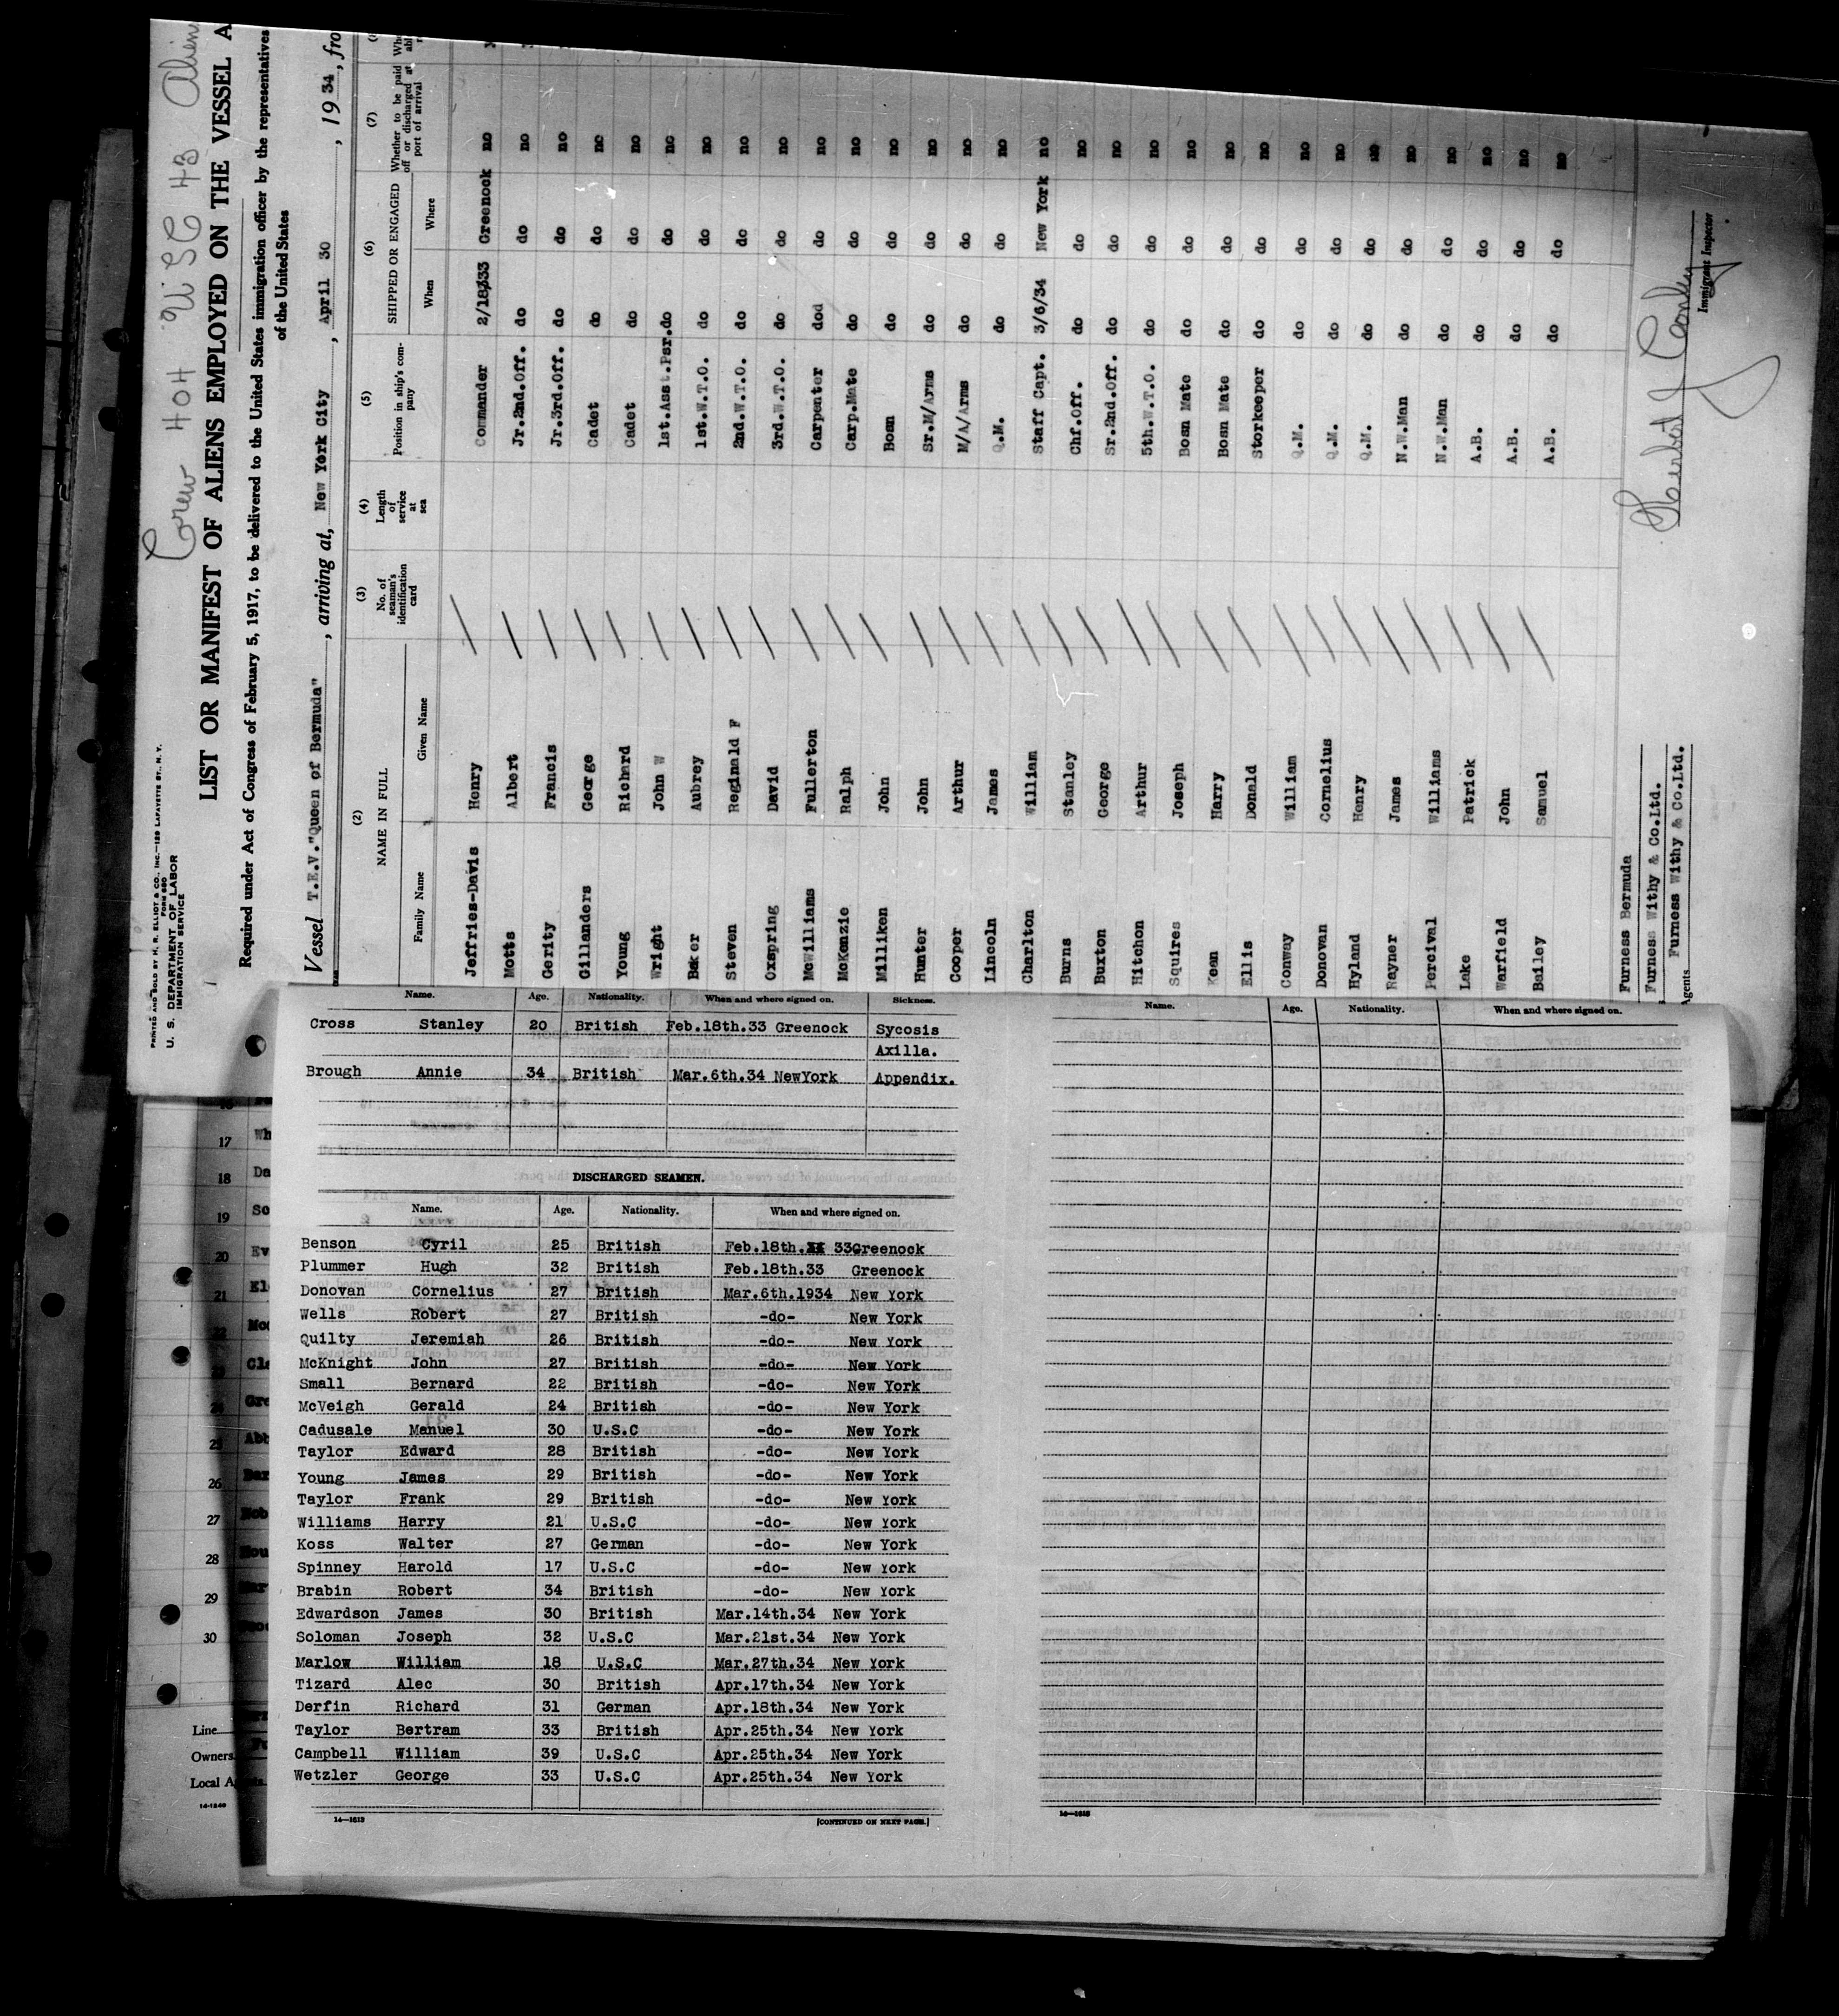 Crew 404 USC 43 Alien
PRINTED AND SOLD BY M. R. ELLIOT & CO., INC.—129 LAFAYETTE ST., N. Y.
FORM 680
U. S. DEPARTMENT OF LABOR
IMMIGRATION SERVICE
LIST OR MANIFEST OF ALIENS EMPLOYED ON THE VESSEL A
Required under Act of Congress of February 5, 1917, to be delivered to the United States immigration officer by the representatives
of the United States
Vessel T.E.V."Queen of Bermuda", arriving at, New York City, April 30, 1934, fro
(2) (3) (4) (5) (6) (7)
NAME IN FULL No. of seaman's identification card Length of service at sea Position in ship's company SHIPPED OR ENGAGED Whether to be paid off or discharged at port of arrival
Family Name Given Name When Where
Jeffries-Davis Henry Commander 2/18/33 Greenock no
Motts Albert Jr.2nd.Off. do do no
Gerity Francis Jr.3rd.Off. do do no
Gillanders George Cadet do do no
Young Richard Cadet do do no
Wright John W 1st.Asst.Psr. do do no
Baker Aubrey 1st.W.T.O. do do no
Steven Reginald F 2nd.W.T.O. do do no
Oxspring David 3rd.W.T.O. do do no
McWilliams Fullerton Carpenter dod do no
McKenzie Ralph Carp.Mate do do no
Milliken John Bosn do do no
Hunter John Sr.M/Arms do do no
Cooper Arthur M/A/Arms do do no
Lincoln James Q.M. do do no
Charlton William Staff Capt. 3/6/34 New York no
Burns Stanley Chf.Off. do do no
Buxton George Sr.2nd.Off. do do no
Hitchon Arthur 5th.W.T.O. do do no
Squires Joseph Bosn Mate do do no
Kean Harry Bosn Mate do do no
Ellis Donald Storkeeper do do no
Conway William Q.M. do do no
Donovan Cornelius Q.M. do do no
Hyland Henry Q.M. do do no
Rayner James N.W.Man do do no
Percival Williams N.W.Man do do no
Lake Patrick A.B. do do no
Warfield John A.B. do do no
Bailey Samuel A.B. do do no
Furness Bermuda
Furness Withy & Co.Ltd.
Agents Furness Withy & Co.Ltd.
Immigrant Inspector
Name. Age. Nationality. When and where signed on. Sickness.
Cross Stanley 20 British Feb.18th.33 Greenock Sycosis
Axilla.
Brough Annie 34 British Mar.6th.34 NewYork Appendix.
DISCHARGED SEAMEN.
Name. Age. Nationality. When and where signed on.
Benson Cyril 25 British Feb.18th. 33Greenock
Plummer Hugh 32 British Feb.18th.33 Greenock
Donovan Cornelius 27 British Mar.6th.1934 New York
Wells Robert 27 British -do- New York
Quilty Jeremiah 26 British -do- New York
McKnight John 27 British -do- New York
Small Bernard 22 British -do- New York
McVeigh Gerald 24 British -do- New York
Cadusale Manuel 30 U.S.C -do- New York
Taylor Edward 28 British -do- New York
Young James 29 British -do- New York
Taylor Frank 29 British -do- New York
Williams Harry 21 U.S.C -do- New York
Koss Walter 27 German -do- New York
Spinney Harold 17 U.S.C -do- New York
Brabin Robert 34 British -do- New York
Edwardson James 30 British Mar.14th.34 New York
Soloman Joseph 32 U.S.C Mar.21st.34 New York
Marlow William 18 U.S.C Mar.27th.34 New York
Tizard Alec 30 British Apr.17th.34 New York
Derfin Richard 31 German Apr.18th.34 New York
Taylor Bertram 33 British Apr.25th.34 New York
Campbell William 39 U.S.C Apr.25th.34 New York
Wetzler George 33 U.S.C Apr.25th.34 New York
14—1613 [CONTINUED ON NEXT PAGE.]
Name. Age. Nationality. When and where signed on.
14—1613
17 Wh
18 Da
19 So
20 Ev
21 El
22 Mo
23 Cl
24 Gre
25 Abb
26 Bar
27 Rob
28 Hou
29 Mar
30
Line
Owners
Local A
14-1240